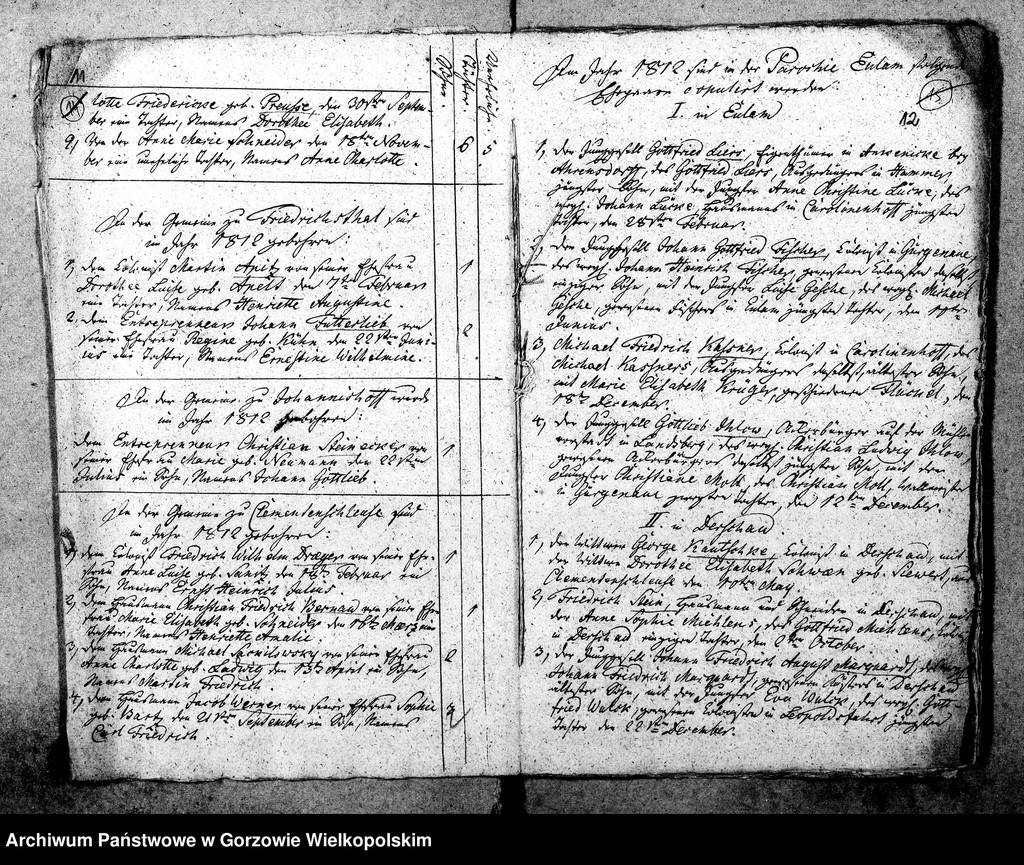 11
lotte Friedericke geb. Preusse, den 30sten Septem-
ber eine Tochter, Namens Dorothee Elisabeth.
9, Von der Anne Marie Schneider den 18ten Novem- 6 5
ber eine uneheliche Tochter, Namens Anne Charlotte.
In der Gemeine zu Friedrichsthal sind
im Jahr 1812 gebohren:
1, dem Colonist Martin Anitz von seiner Ehefrau 1
Dorothee Luise geb. den 7ten Februar
eine Tochter, Namens Henriette Augustine.
2, dem Entreprenneur Johann Futterlieb von 2
seiner Ehefrau Regine geb. Kühn, den 22sten Juni-
us eine Tochter, Namens Ernestine Wilhelmine.
In der Gemeine zu Johannishoff wurde
im Jahr 1812 gebohren:
dem Entreprenneur Christian Steinacker von 1
seiner Ehefrau Marie geb. Neumann den 22sten
Julius ein Sohn, Namens Johann Gottlieb.
In der Gemeine zu Clementenschleuse sind
im Jahr 1812 gebohren:
1, dem Colonist Friedrich Wilhelm Draeger von seiner Ehe- 1
frau Anne Luise geb. den 18ten Februar ein
Sohn, Namens Ernst Heinrich Julius
2, dem Hausmann Christian Friedrich Bernau von seiner Ehe- 1
frau Marie Elisabeth geb. Schneider den 18ten Maerz eine
Tochter, Namens Henriette Amalie.
3, dem Hausmann Michael von seiner Ehefrau 2
Anne Charlotte geb. Ludwig den 13ten April ein Sohn,
Namens Martin Friedrich.
4, dem Hausmann Jacob Werner von seiner Ehefrau Sophie
geb. Bartz den 21sten September ein Sohn, Namens
Carl Friedrich.
Im Jahr 1812 sind in der Parochie Eulam folgende
Ehepaare copulirt worden.
I. in Eulam
12
1, der Junggesell Gottfried Liers, Eigenthümer in bey
Ahrensdorff, des Gottfried Liers, Ausgedingers in Hammer
jüngster Sohn, mit der Jungfer Anne Christine Lücke, des
Johann Lücke, Hausmanns in Carolinenhoff jüngsten
Tochter, den 28sten Februar.
der Junggesell Johann Gottfried Fischer, Colonist in Gürgenaue,
des Johann Heinrich Fischer, gewesenen Colonisten daselbst
einziger Sohn, mit der Jungfer Luise Gesche, des Michael
Gesche, gewesenen Fischers in Eulam jüngsten Tochter, den
Junius.
3, Michael Friedrich Kassner, Colonist in Carolinenhoff, des
Michael Kassners, Ausgedingers daselbst, ältester Sohn,
mit Marie Elisabeth Krüger, geschiedenen den
18ten December.
4, der Junggesell Gottlieb Ihlow, Ackerbürger auf der Mühlen
vorstadt in Landsberg, des Christian Ludwig Ihlow,
gewesenen Ackerbürgers daselbst jüngster Sohn, mit der
Jungfer Christiane Moll, des Christian Moll, Wallmeister
in Gürgenaue jüngsten Tochter, den 12ten December.
II. in Derschau
1, der Wittwer George Kautschke, Colonist in Derschau, mit
der Wittwe Dorothee Elisabeth Schwan geb. Siewert, aus
Clementenschleuse den May.
2, Friedrich Stein, Hausmann und Schneider in Derschau, mit
der Anne Sophie Miehlens, des Gottfried Miehlens,
in Derschau einzigen Tochter, den 2ten October.
3, der Junggesell Johann Friedrich August Marquard, des
Johann Friedrich Marquard, gewesenen Küsters in Derschau
ältester Sohn, mit der Jungfer Eva Walck, des Gott-
fried Walck, gewesenen Colonisten in Leopoldsfahrt jüngsten
Tochter den 22sten December.
Archiwum Państwowe w Gorzowie Wielkopolskim